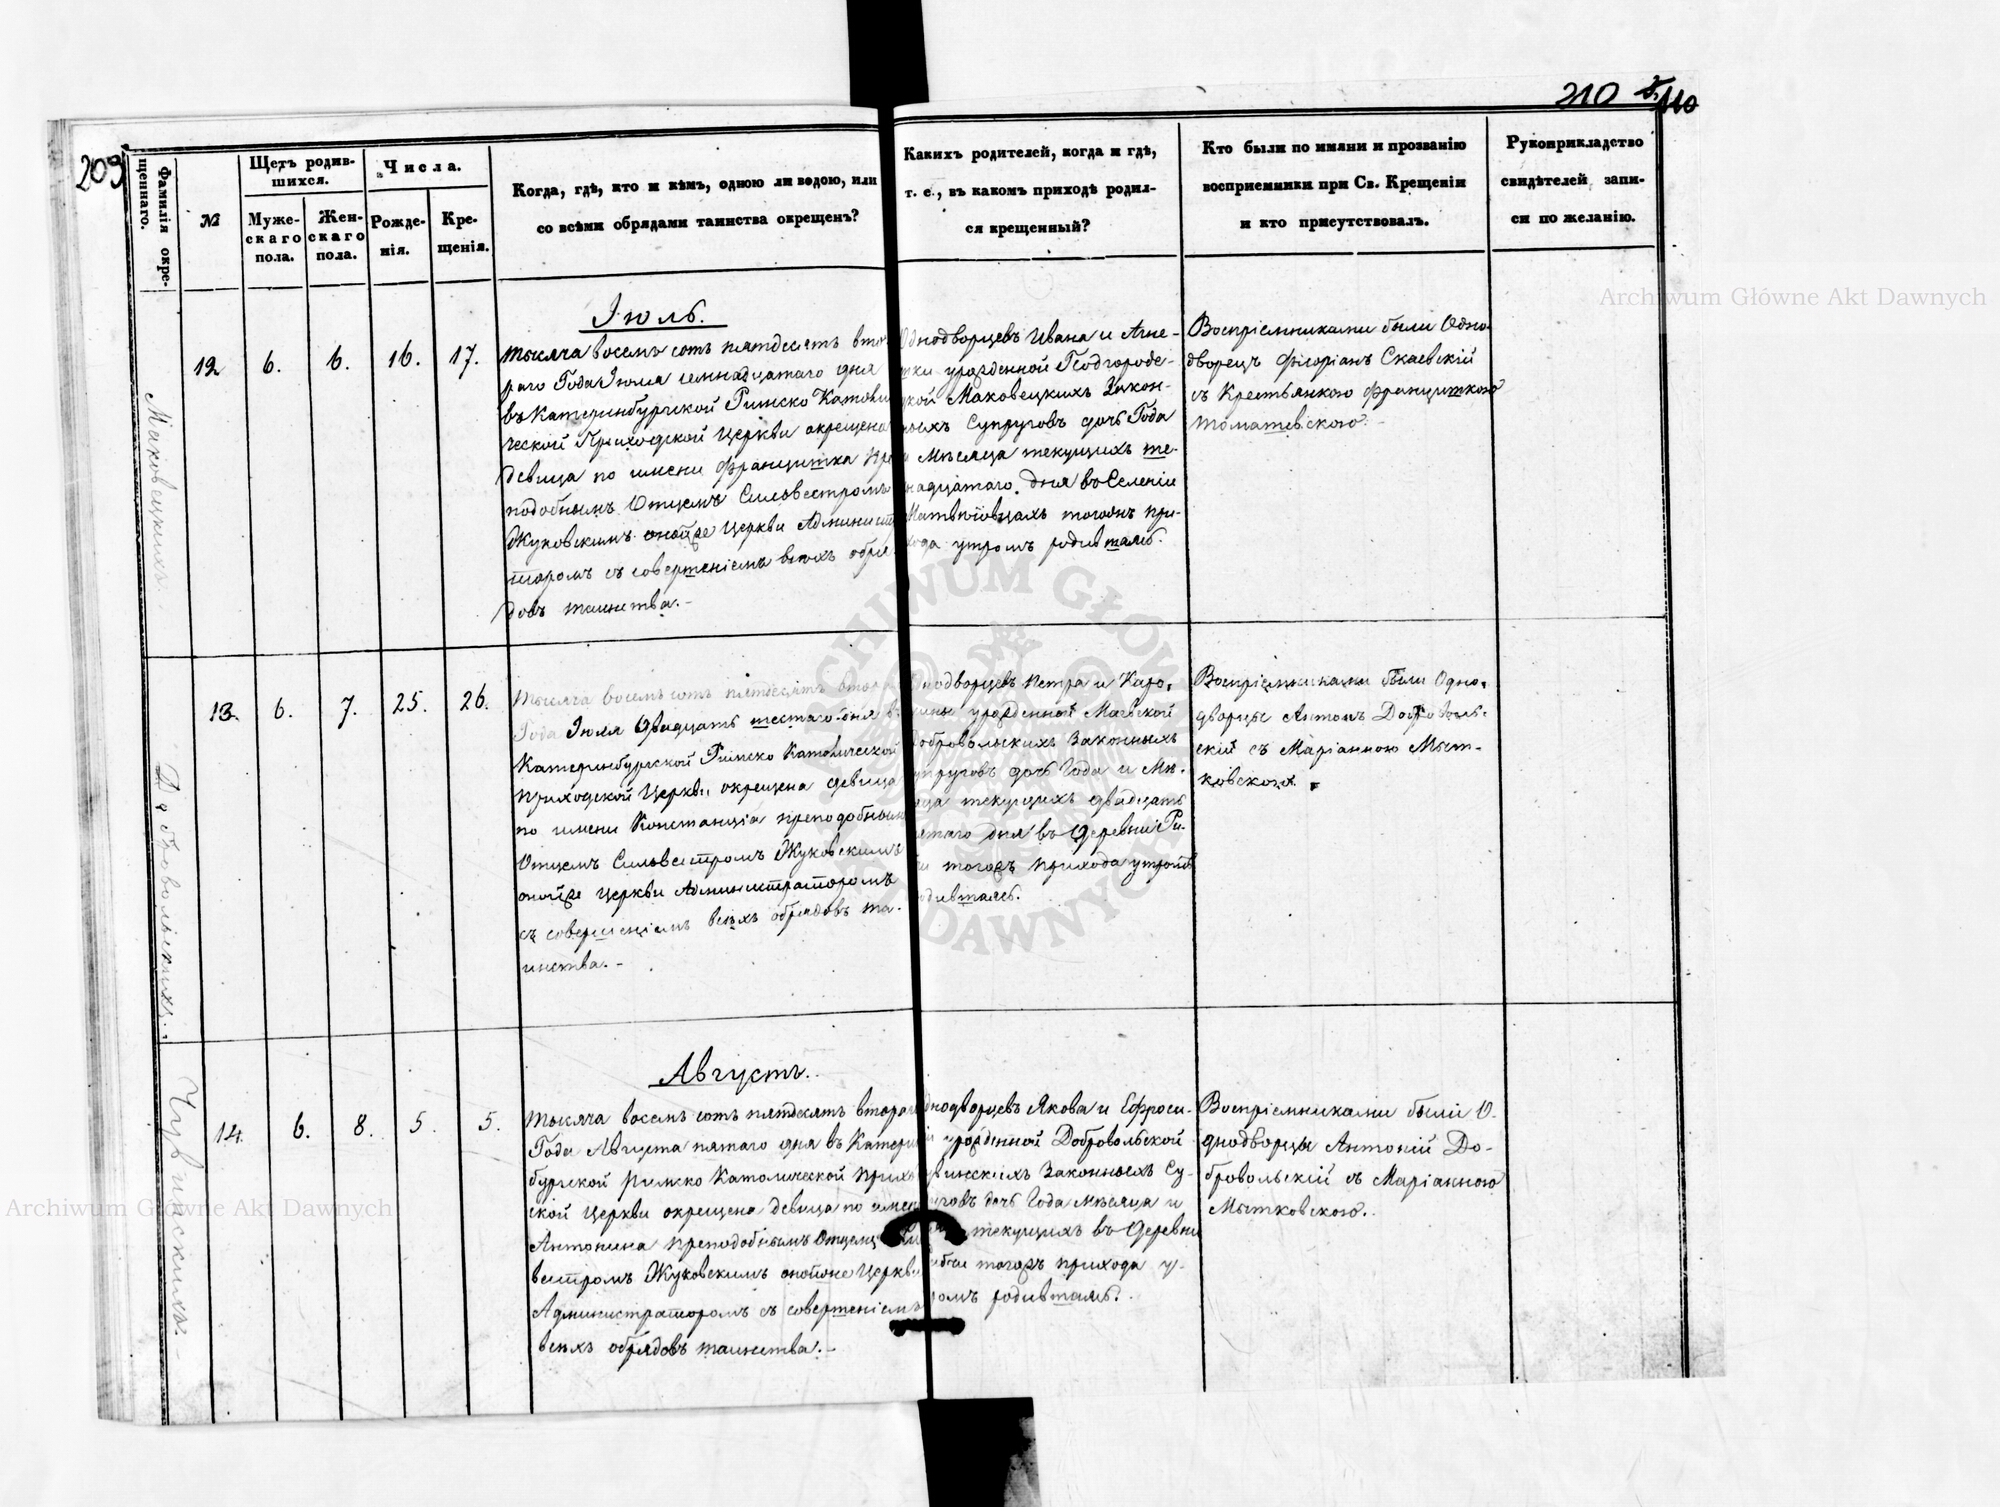 209
210
110
Фамилія окре-
щеннаго.
№
Щетъ родив-
шихся.
Муже-
скаго
пола.
Жен-
скаго
пола.
Числа.
Рожде-
нія.
Кре-
щенія.
Когда, гдѣ, кто и кѣмъ, одною ли водою, или
со всѣми обрядами таинства окрещенъ?
Какихъ родителей, когда и гдѣ,
т. е., въ какомъ приходѣ родил-
ся крещенный?
Кто были по имяни и прозванію
воспріемники при Св. Крещеніи
и кто присутствовалъ.
Рукоприкладство
свидѣтелей запи-
си по желанію.
Маковецкихъ.
12.
6.
6.
16.
17.
Іюль.
Тысяча восемь сотъ пятдесятъ вто-
раго Года Іюля семнадцатаго дня
въ Катеринбургской Римско Католи
ческой Приходской Церкви окрещена
девица по имени Францишка пре
подобнымъ Отцемъ Сильвестромъ
Жуковскимъ онойже Церкви Админист
раторомъ съ совершеніемъ всѣхъ обря
довъ таинства.-
Однодворцевъ Ивана и Агне-
шки урожденной Подгороде-
цкой Маковецкихъ Закон-
ныхъ Супруговъ дочь Года
и Мѣсяца текущихъ ше-
надцатаго дня въ Селеніи
Матвѣйовцахъ тогожъ при-
хода утромъ родившаясь.
Воспріемниками были Одно-
дворецъ Флоріанъ Скаевскій
съ Крестьянкою Францишкою
Томашевскою.
Добровольскихъ.
13.
6.
7.
25.
26.
Тысяча восемь сотъ пятдесятъ втора
Года Іюля двадцать шестаго дня въ
Катеринбургской Римско Католической
Приходской Церкви окрещена девица
по имени Констанція преподобнымъ
Отцемъ Сильвестромъ Жуковскимъ
онойже Церкви Администраторомъ
съ совершеніемъ всѣхъ обрядовъ та-
инства.-
Однодворцевъ Петра и Каро-
лины урожденной Маевской
Добровольскихъ Законныхъ
Супруговъ дочь Года и Мѣ-
сяца текущихъ двадцать
пятаго дня въ Деревни Ри-
тогожъ прихода утромъ
родившаясь.
Воспріемниками были Одно-
дворцы Антонъ Доброволь-
скій съ Маріанною Мыт-
ковскою.
Чурвинскихъ.-
14.
6.
8.
5.
5.
Августъ.
Тысяча восемь сотъ пятдесятъ втораго
Года Августа пятаго дня въ Катерин
бургской Римско Католической Прихо
ской Церкви окрещена девица по имени
Антонина преподобнымъ Отцемъ Сил
вестромъ Жуковскимъ онойже Церкви
Администраторомъ съ совершеніемъ
всѣхъ обрядовъ таинства.-
Однодворцевъ Якова и Ефроси-
урожденной Добровольской
Законныхъ Су-
пруговъ дочь Года мѣсяца и
текущихъ въ Деревни
тогожъ прихода у-
тромъ родившаясь.
Воспріемниками были О-
днодворцы Антоній До-
бровольскій съ Маріанною
Мытковскою.
Archiwum Główne Akt Dawnych
Archiwum Główne Akt Dawnych
ARCHIWUM GŁÓWNE AKT DAWNYCH